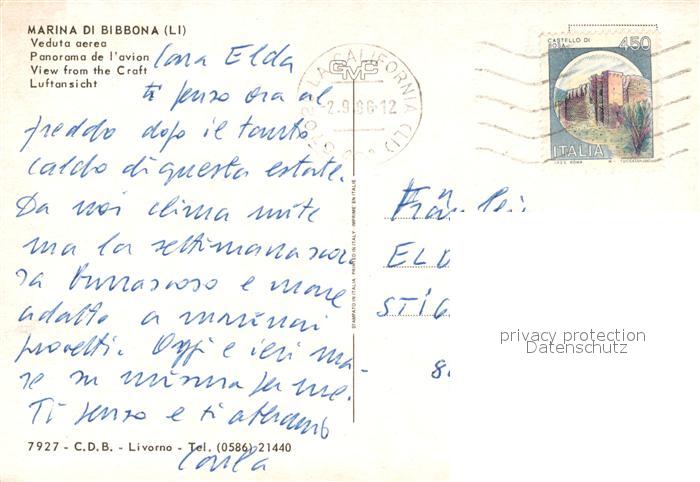 MARINA DI BIBBONA (LI)
Veduta aerea
Panorama de l'avion
View from the Craft
Luftansicht
Cara Elda
ti penso ora al
freddo dopo il tanto
caldo di questa estate.
Da noi clima mite
ma la settimana scor
sa burrascoso e mare
adatto a marinai
provetti. Oggi e ieri ma-
re su misura per me.
Ti penso e ti attendo
7927 - C.D.B. - Livorno - Tel. (0586) 21440
STAMPATO IN ITALIA PRINTED IN ITALY IMPRIMÉ EN ITALIE
LA CALIFORNIA (LI)
GMC
2.9.86-12
CASTELLO DI
450
ITALIA
Fräulein
ELD
STIG
8
privacy protection
Datenschutz